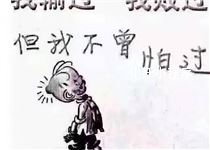 我输过 我败过
但我不曾怕过